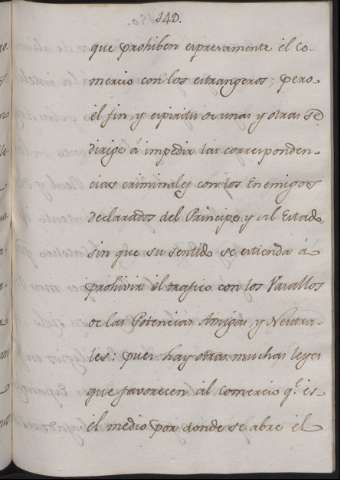 140.
que prohiben expresamente el Co-
mercio con los estrangeros; pero
el fin y espiritu de unas y otras se
dirige á impedir las corresponden-
cias criminales con los Enemigos
declarados del Principe, y del Estado
sin que su sentido se estienda á
prohivir el trafico con los Vasallos
de las Potencias Amigas, y Neutra-
les: pues hay otras muchas leyes
que favorecen al comercio q.e es
el medio por donde se abre el